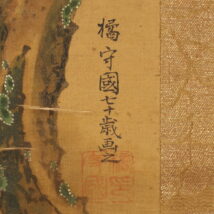 橘守國七十歳画之